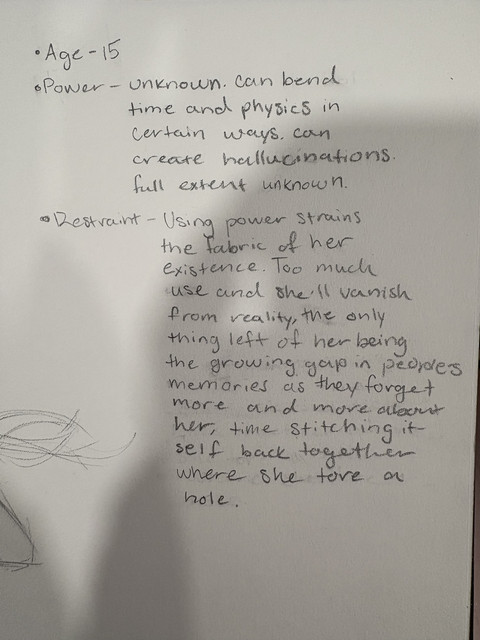 • Age - 15
• Power - unknown. can bend
time and physics in
certain ways. can
create hallucinations.
full extent unknown.
• Restraint - Using power strains
the fabric of her
existence. Too much
use and she'll vanish
from reality, the only
thing left of her being
the growing gap in peoples
memories as they forget
more and more about
her, time stitching it-
self back together
where she tore a
hole.